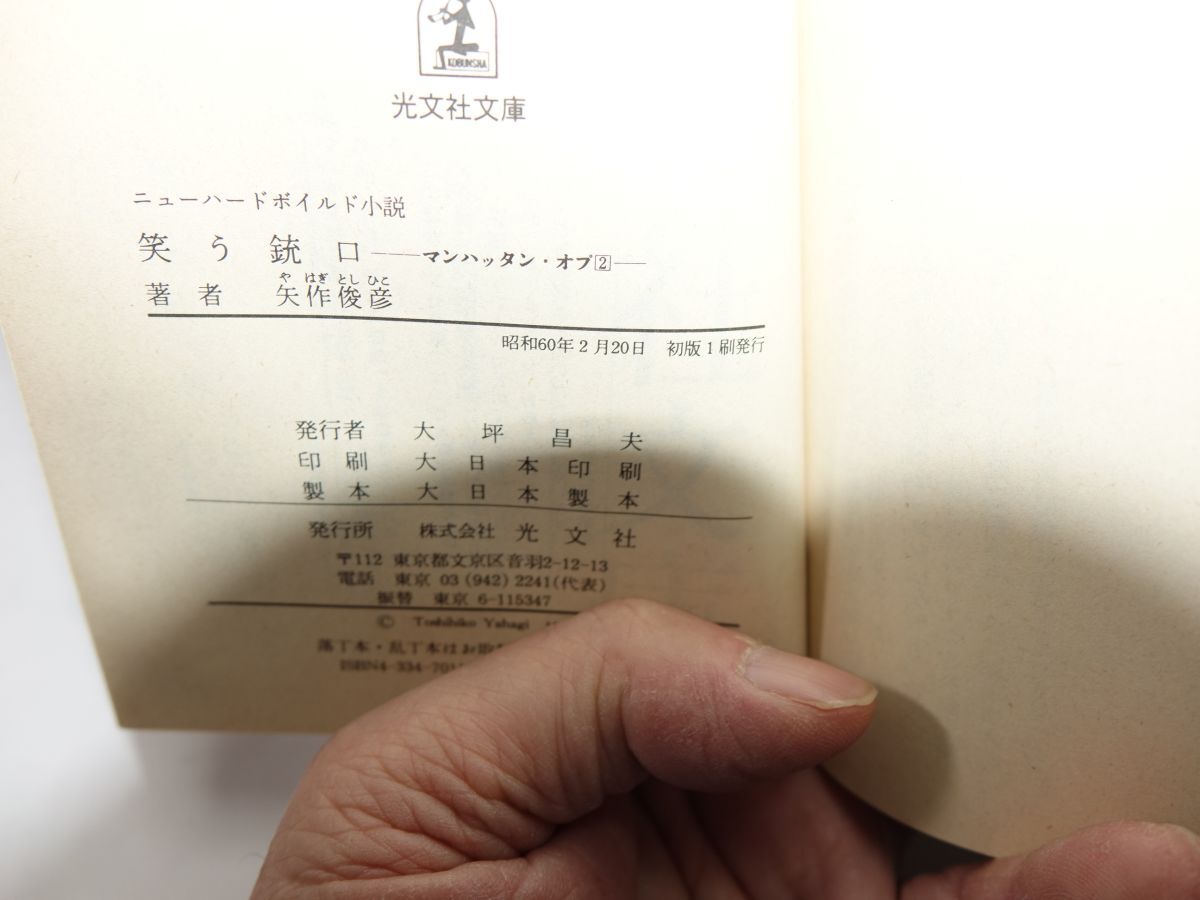 KOBUNSHA
光文社文庫
ニューハードボイルド小説
笑う銃口――マンハッタン・オプ2――
著者 矢作俊彦
や はぎ とし ひこ
昭和60年2月20日 初版1刷発行
発行者 大坪昌夫
印刷 大日本印刷
製本 大日本製本
発行所 株式会社 光文社
〒112 東京都文京区音羽2-12-13
電話 東京 03(942)2241(代表)
振替 東京 6-115347
© Toshihiko Yahagi
落丁本・乱丁本はお取
ISBN4-334-701